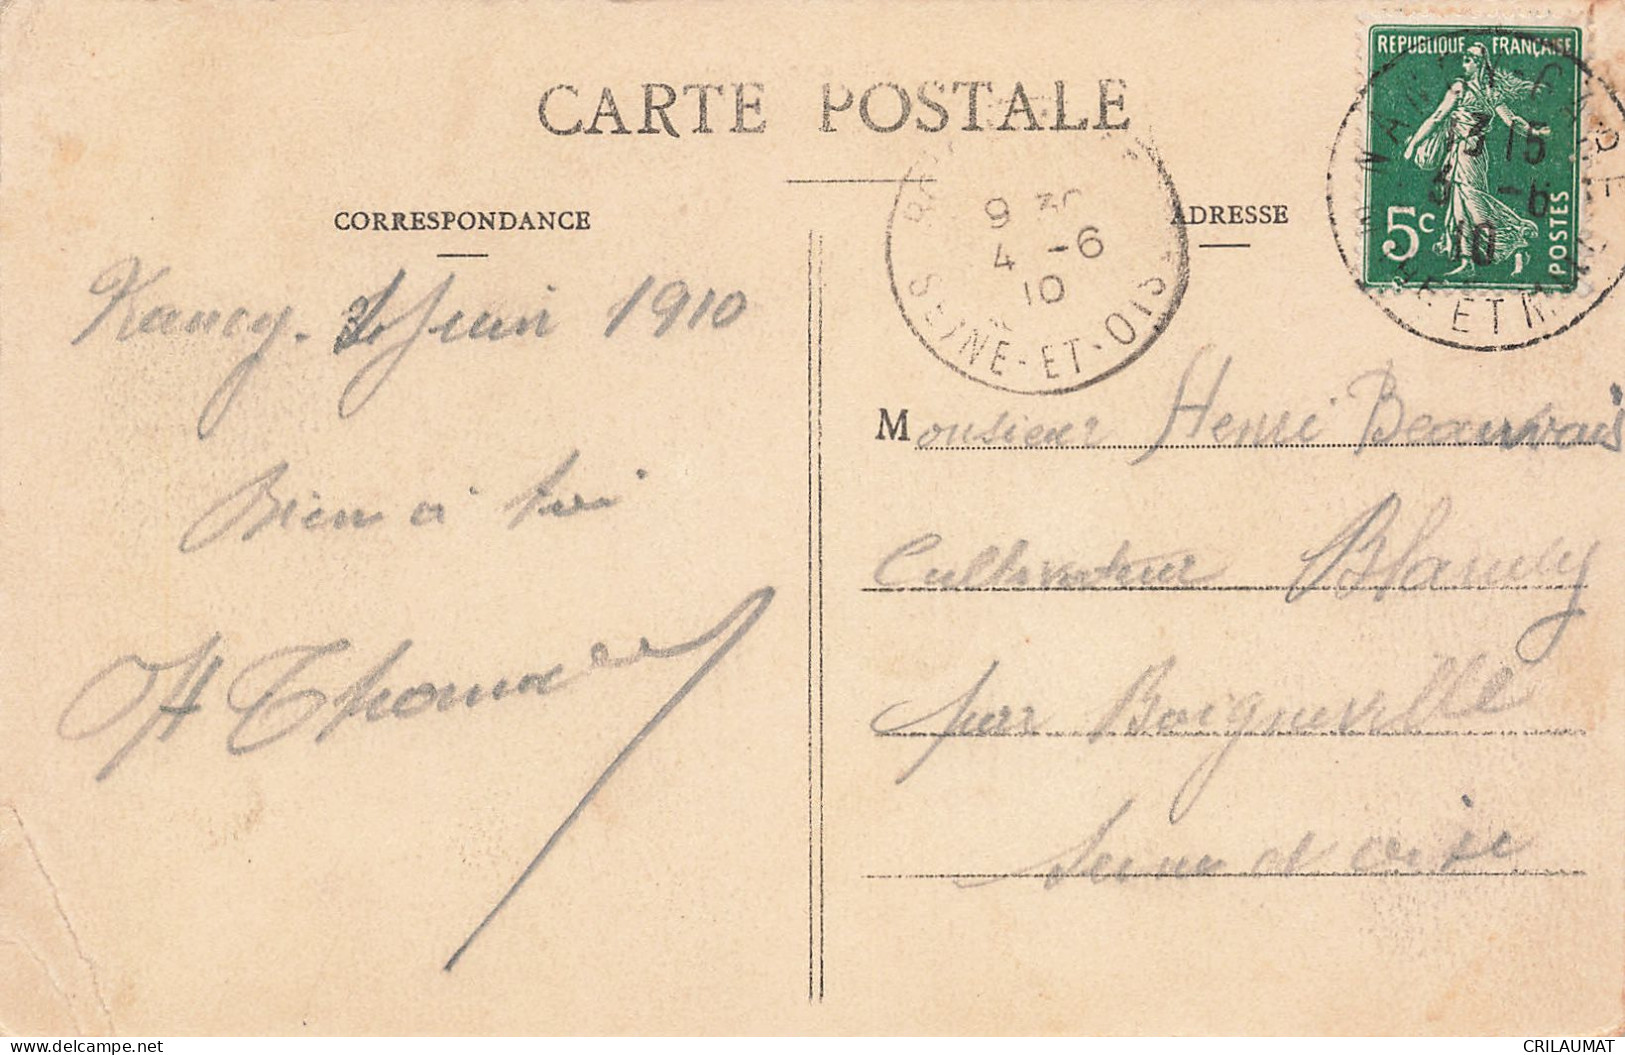 CARTE POSTALE
CORRESPONDANCE
ADRESSE
REPUBLIQUE FRANÇAISE
5c
POSTES
13 15
3 -6
10
ET
9 30
4 -6
10
SEINE-ET-OISE
Juin 1910
Bien à toi
Monsieur Henri Beauvais
Cultivateur Blandy
par Boigneville
Seine et oise
delcampe.net
CRILAUMAT